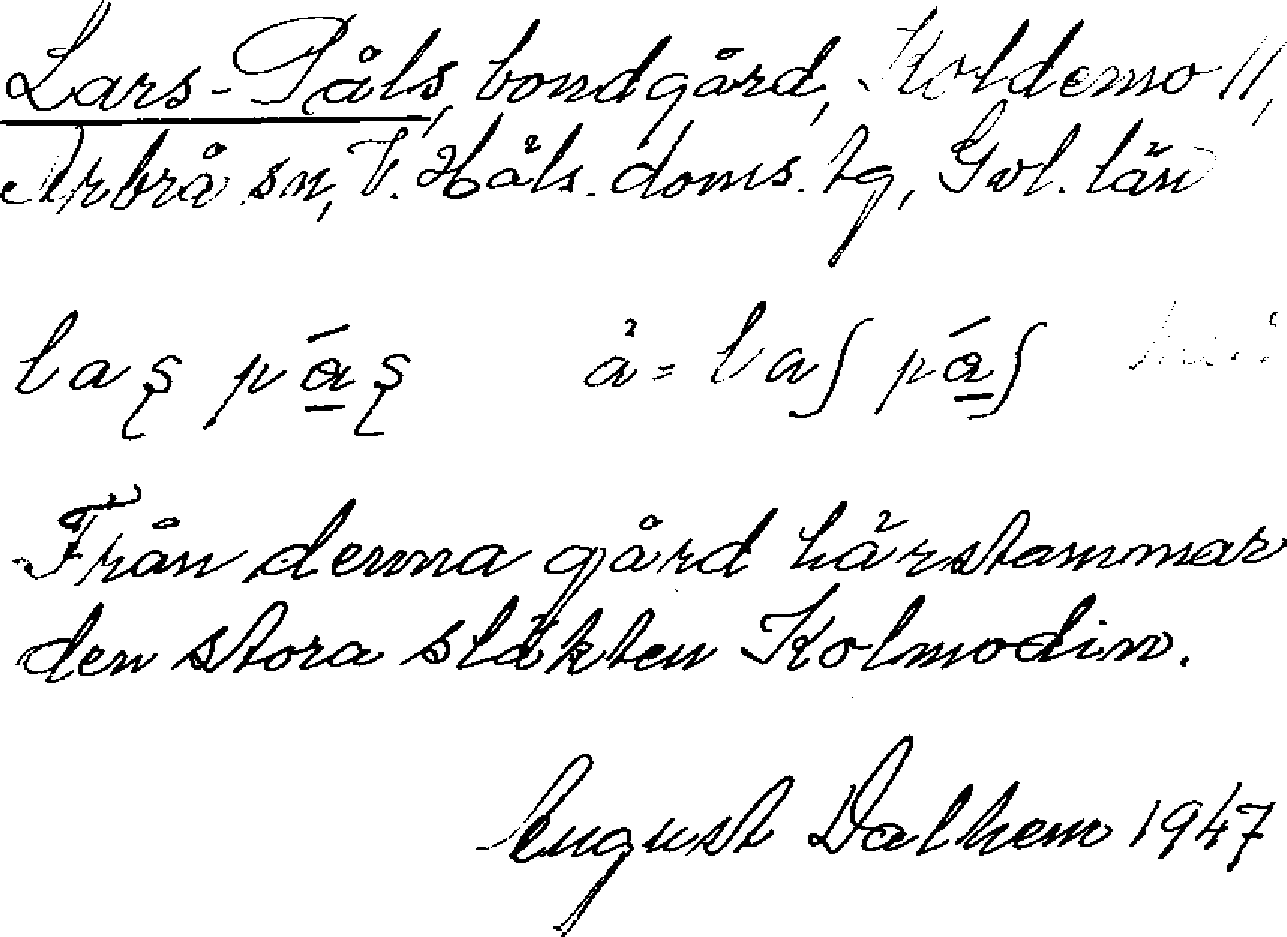 Lars-Påls, bondgård, Koldemo 11,
Arbrå sn, V. Häls. doms. tg, Gvl. län
laʂ pá̱ʂ ä = laʃ pá̱ʃ
Från denna gård härstammar
den stora släkten Kolmodin.
August Dalhem 1947